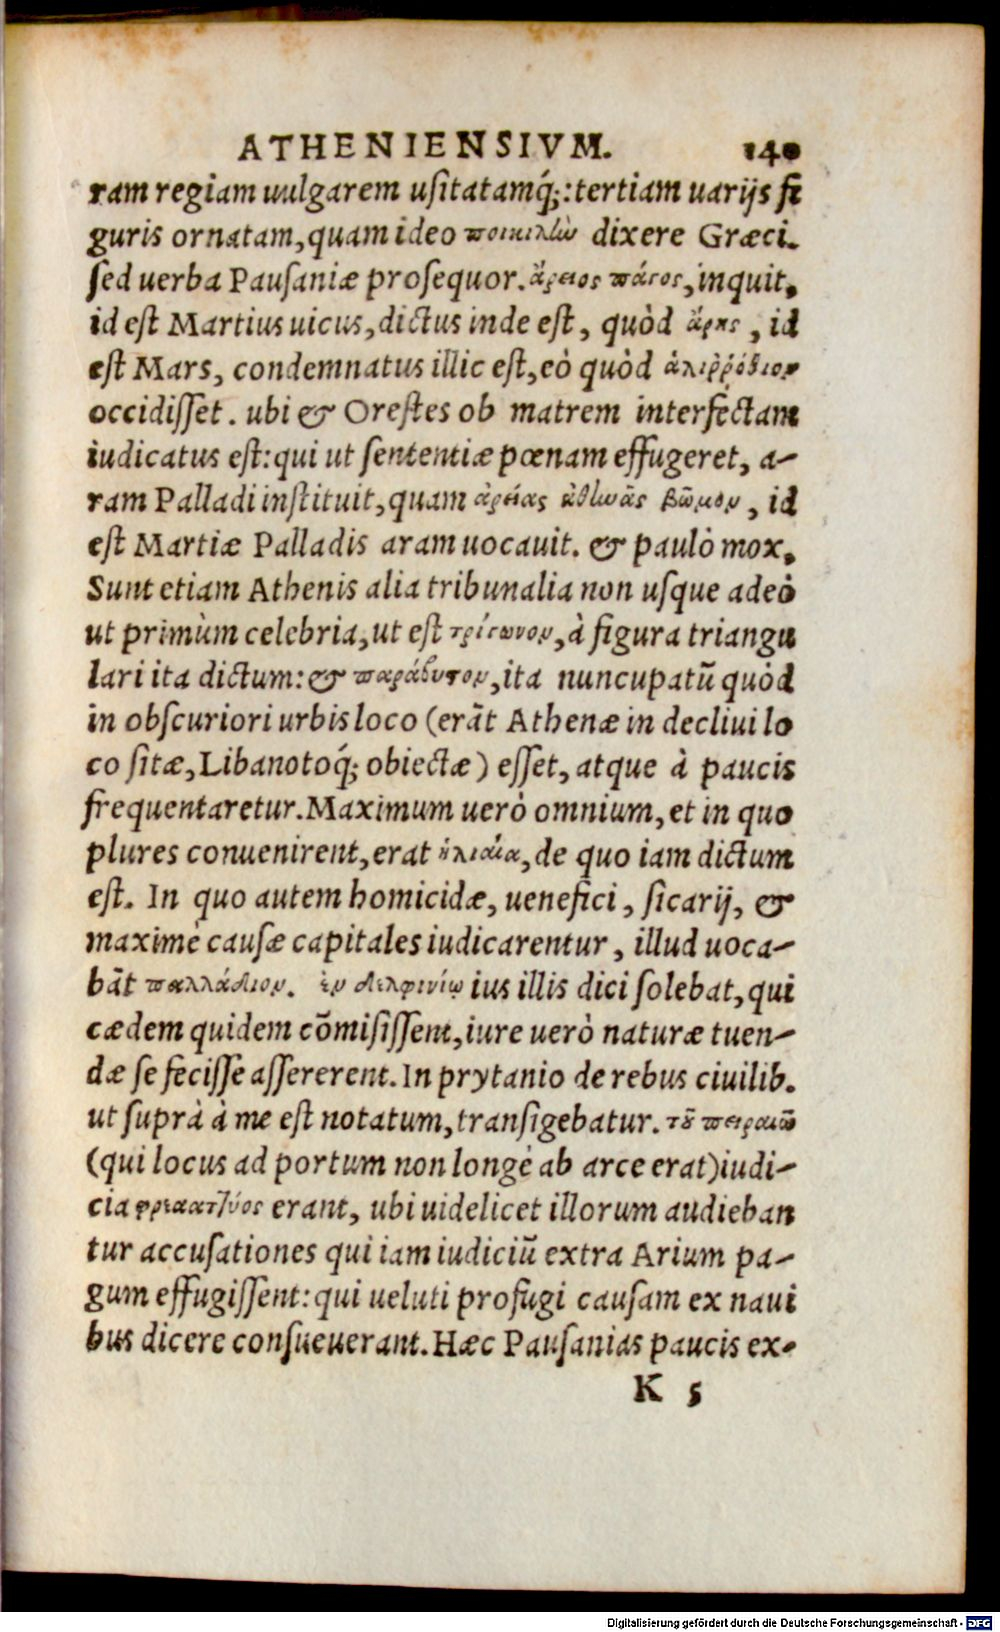 ATHENIENSIVM. 140
ram regiam uulgarem usitatamq́;: tertiam uarijs fi
guris ornatam, quam ideo ποικιλὼ dixere Græci.
sed uerba Pausaniæ prosequor. ἄρειος πάγος, inquit,
id est Martius uicus, dictus inde est, quòd ἄρης, id
est Mars, condemnatus illic est, eò quòd ἁλιῤῥόθιον
occidisset. ubi & Orestes ob matrem interfectam
iudicatus est: qui ut sententiæ pœnam effugeret, a-
ram Palladi instituit, quam ἀρείας ἀθηνᾶς βῶμον, id
est Martiæ Palladis aram uocauit. & paulò mox,
Sunt etiam Athenis alia tribunalia non usque adeò
ut primùm celebria, ut est τρίγωνον, à figura triangu
lari ita dictum: & παράβυτον, ita nuncupatū quòd
in obscuriori urbis loco (erāt Athenæ in decliui lo
co sitæ, Libanotoq́; obiectæ) esset, atque à paucis
frequentaretur. Maximum uerò omnium, et in quo
plures conuenirent, erat ἡλιαία, de quo iam dictum
est. In quo autem homicidæ, uenefici, sicarij, &
maximè causæ capitales iudicarentur, illud uoca-
bāt παλλάδιον. ἐν δελφινίῳ ius illis dici solebat, qui
cædem quidem cōmisissent, iure uerò naturæ tuen-
dæ se fecisse assererent. In prytanio de rebus ciuilib.
ut suprà à me est notatum, transigebatur. τοῦ πειραιῶ
(qui locus ad portum non longè ab arce erat) iudi-
cia erant, ubi uidelicet illorum audieban
tur accusationes qui iam iudiciū extra Arium pa-
gum effugissent: qui ueluti profugi causam ex naui
bus dicere consueuerant. Hæc Pausanias paucis ex-
K 5
Digitalisierung gefördert durch die Deutsche Forschungsgemeinschaft - DFG